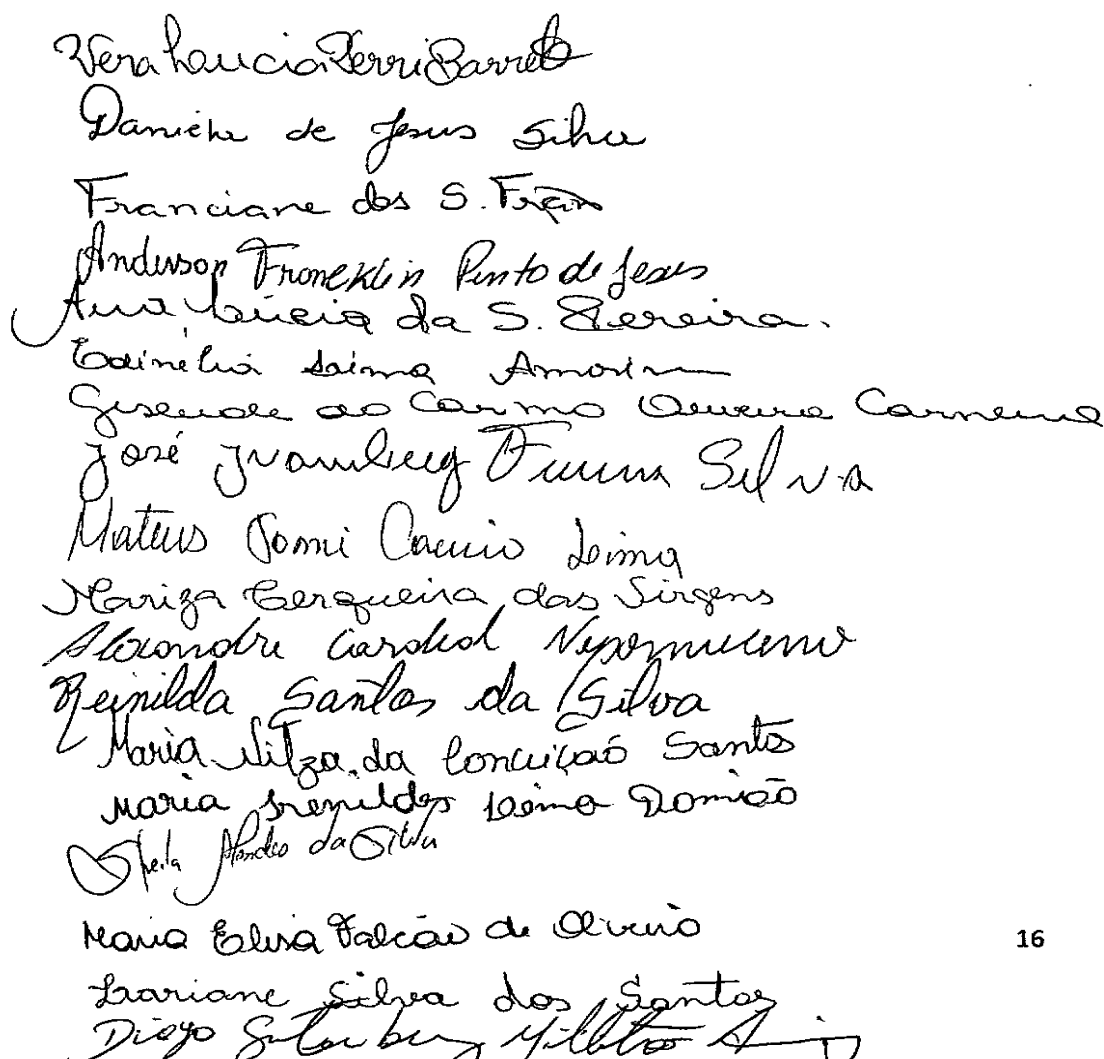 Vera Laucia Ferri Barreto
Daniela de Jesus Silva
Franciane dos S.
Anderson Francklin Pinto de Jesus
Ana Lúcia da S. Pereira.
Edinélia Lima Amorim
do Carmo Oliveira Carneiro
José Silva
Mateus Lima
Mariza Cerqueira das Virgens
Alexandre Cardeal Nepomuceno
Reinilda Santos da Silva
Maria Nilza da Conceição Santos
Maria Irenildes Lima Damião
Sheila Mendes da Silva
Maria Elisa Falcão de Oliveira
16
Lariane Silva dos Santos
Diogo